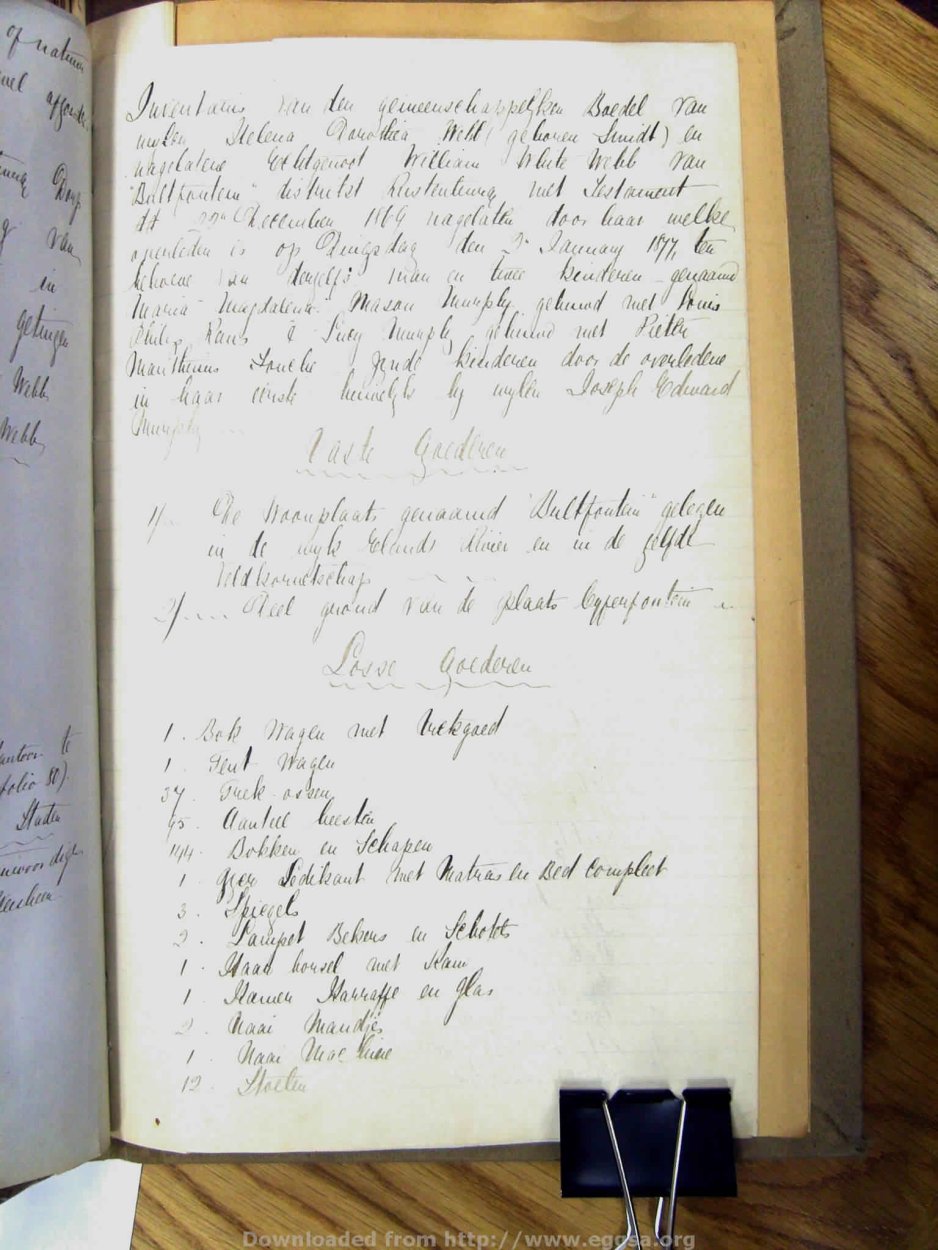 of natuur
Inventaris van den gemeenschappelyken Boedel van
wylen Helena Dorothea Webb (geboren Smidt) en
nagelatene Echtgenoot William White Webb van
"Bultfontein" distrikt Rustenburg met Testament
dd December 1869 nagelaten door haar welke
overleden is op Dingsdag den 2 January 1877, ten
behoeve van deszelfs man en twee kinderen genaamd
Maria Magdalena Mason Murphy gehuwd met Louis
Philip & Lucy Murphy gehuwd met Pieter
zynde kinderen door de overledene
in haar eerste huwelyk by wylen Joseph Edward
Murphy
Vaste Goederen
1/. De Woonplaats genaamd "Bultfontein" gelegen
in de wyk Elands Rivier en in de zelfde
Veldkornetschap
2/. Deel grond van de plaats Cyferfontein
Losse Goederen
1. Bok Wagen met trekgoed
1. Tent Wagen
37. Trek ossen
95. Aanteel beesten
144. Bokken en Schapen
1. Yzer Ledikant met Matras en Bed Compleet
3. Spiegels
2. Lampet Bekens en Schotels
1. Haar borsel met Kam
1. Kamer Karraffe en glas
2. Naai Mandjes
1. Naai Machine
12. Stoelen
van
in
getuigen
Webb
Webb
te
folio 80)
Downloaded from http://www.eggsa.org